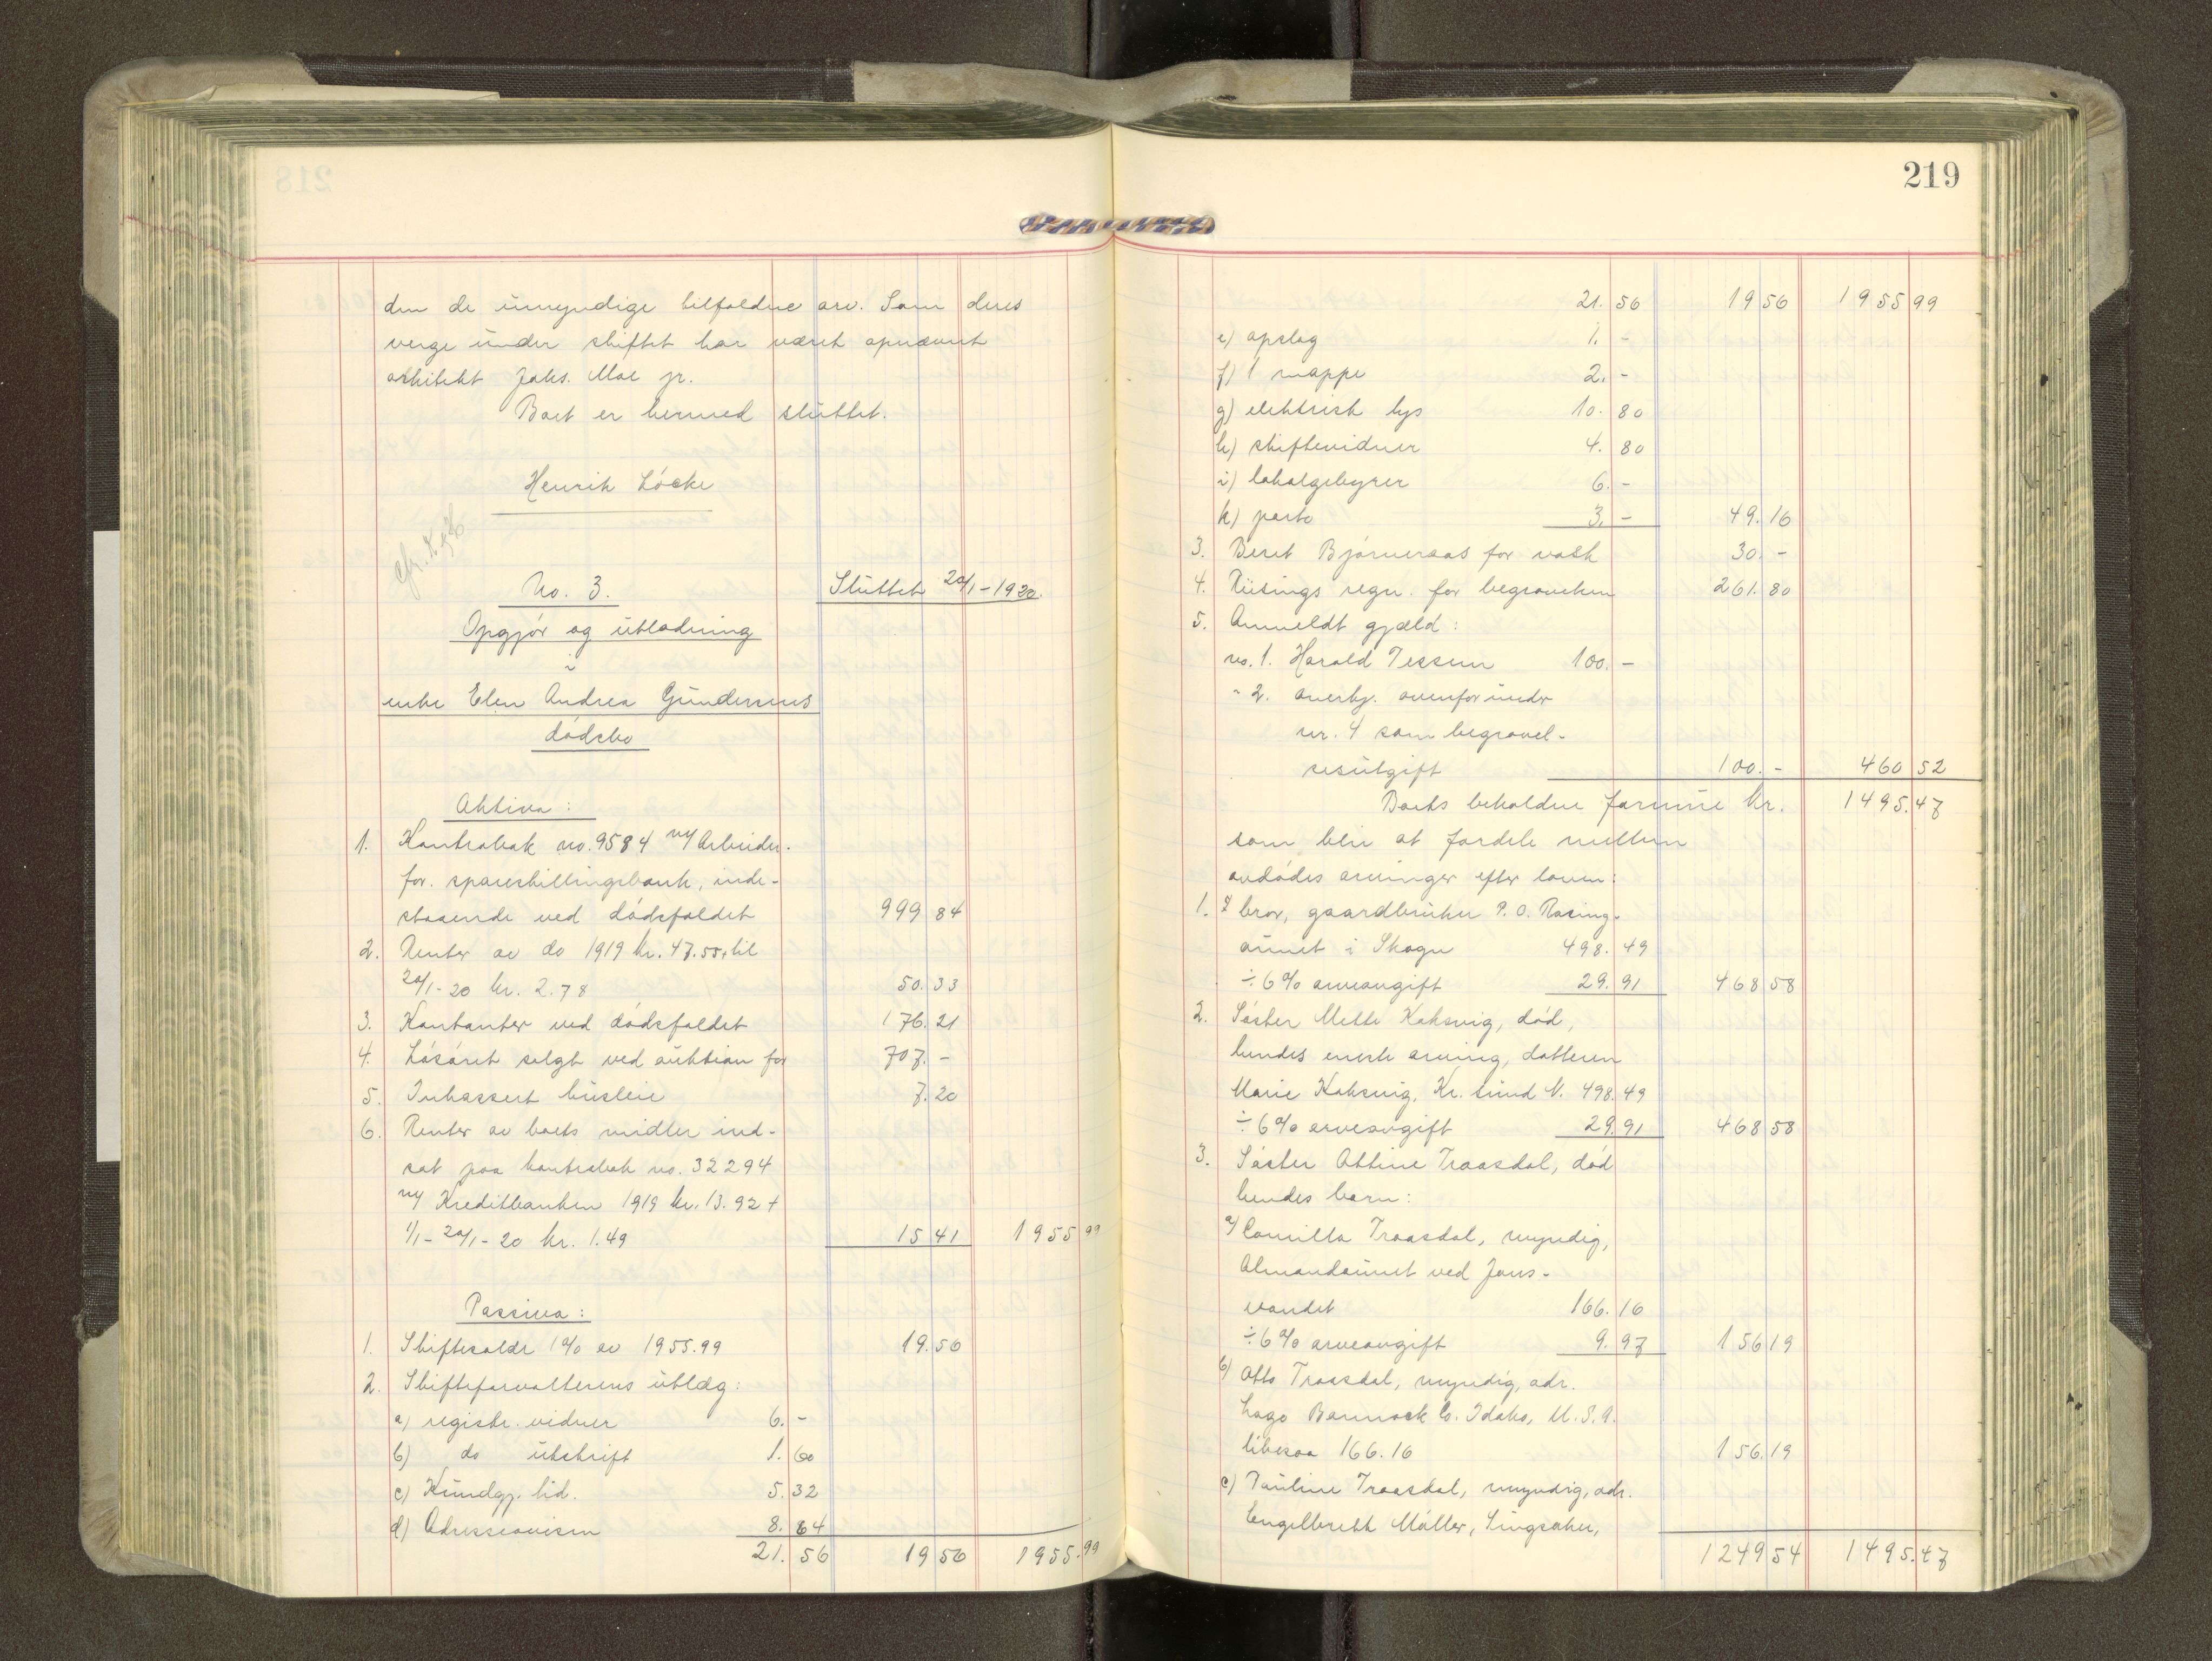 218
den de umyndige tilfaldne arv. Som deres
verge under skiftet har været opnævnt
arkitekt Johs. Moe jr.
Boet er hermed sluttet.
Henrik Löcke
No. 3.
Sluttet 20/1-1920.
Opgjør og utlodning
i
enke Elen Andrea Gundersens
dødsbo
Aktiva:
1. Kontrabok no. 9584 m/ Arbeider-
for. spareskillingsbank, inde-
staaende ved dødsfaldet 999 84
2. Renter av do 1919 kr. 47.55 + til
20/1-20 kr. 2.78 50.33
3. Kontanter ved dødsfaldet 176.21
4. Løsøret solgt ved auktion for 707.-
5. Inkassert husleie 7.20
6. Renter av boets midler ind-
sat paa kontrabok no. 32294
m/ Kreditbanken 1919 kr. 13.92 +
1/1-20/1-20 kr. 1.49 15 41 1955 99
Passiva:
1. Skiftesalær 1% av 1955.99 19.56
2. Skifteforvalterens utlæg:
a) registr. vidner 6.-
b) do utskrift 1.60
c) Kundgj. tid. 5.32
d) Adresseavisen 8.64
21.56 19 56 1955.99
219
21.56 19 56 1955 99
e) opslag 1.-
f) 1 mappe 2.-
g) elektrisk lys 10.80
h) skiftevidner 4.80
i) lokalgebyrer 6.-
k) porto 3.- 49.16
3. Beret Bjørneraas for vask 30.-
4. Riisings regn. for begravelsen 261.80
5. Anmeldt gjæld:
no. 1. Harald Tessem 100.-
" 2. anerkj. ovenfor under
nr. 4 som begravel-
sesutgift 100.- 460 52
Boets beholdne formue kr. 1495.47
som blir at fordele mellem
avdødes arvinger efter loven:
1. bror, gaardbruker P. O. Rosing-
aunet i Skogn 498.49
÷ 6% arveavgift 29.91 468 58
2. Søster Mette Koksvig, død,
hendes eneste arving, datteren
Marie Koksvig, Kr. sund N. 498.49
÷ 6% arveavgift 29.91 468 58
3. Søster Ottine Traasdal, død
hendes barn:
a) Camilla Traasdal, myndig,
Almondaunet ved Jons-
vandet 166.16
÷ 6% arveavgift 9.97 156 19
b) Otto Traasdal, myndig, adr.
Lago Bannock Co. Idaho, U.S.A.
likesaa 166.16 156.19
c) Pauline Traasdal, myndig, adr.
Engelbrekt Møller, Singsaker,
1249 54 1495.47